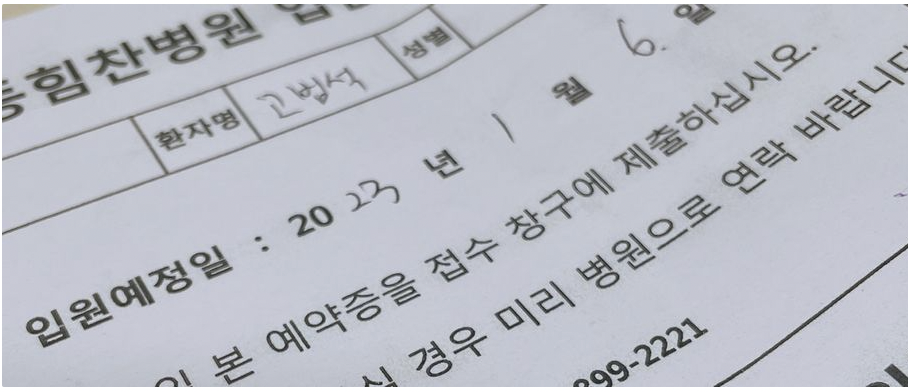 힘찬병원
환자명 고법석 성별
입원예정일 : 2023 년 1 월 6. 일
본 예약증을 접수 창구에 제출하십시오.
경우 미리 병원으로 연락 바랍니다
899-2221